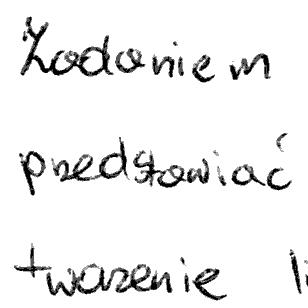 Zadaniem
przedstawiać
twarzenie li